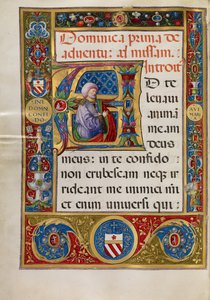 Dominica prima de
aduentu: ad missam.
Introit
D te
leuaui
animã
meam
deus
meus: in te confido
non erubescam neqꝫ ir
rideant me inimici mi
et enim uniuersi qui:
CONFI
DO